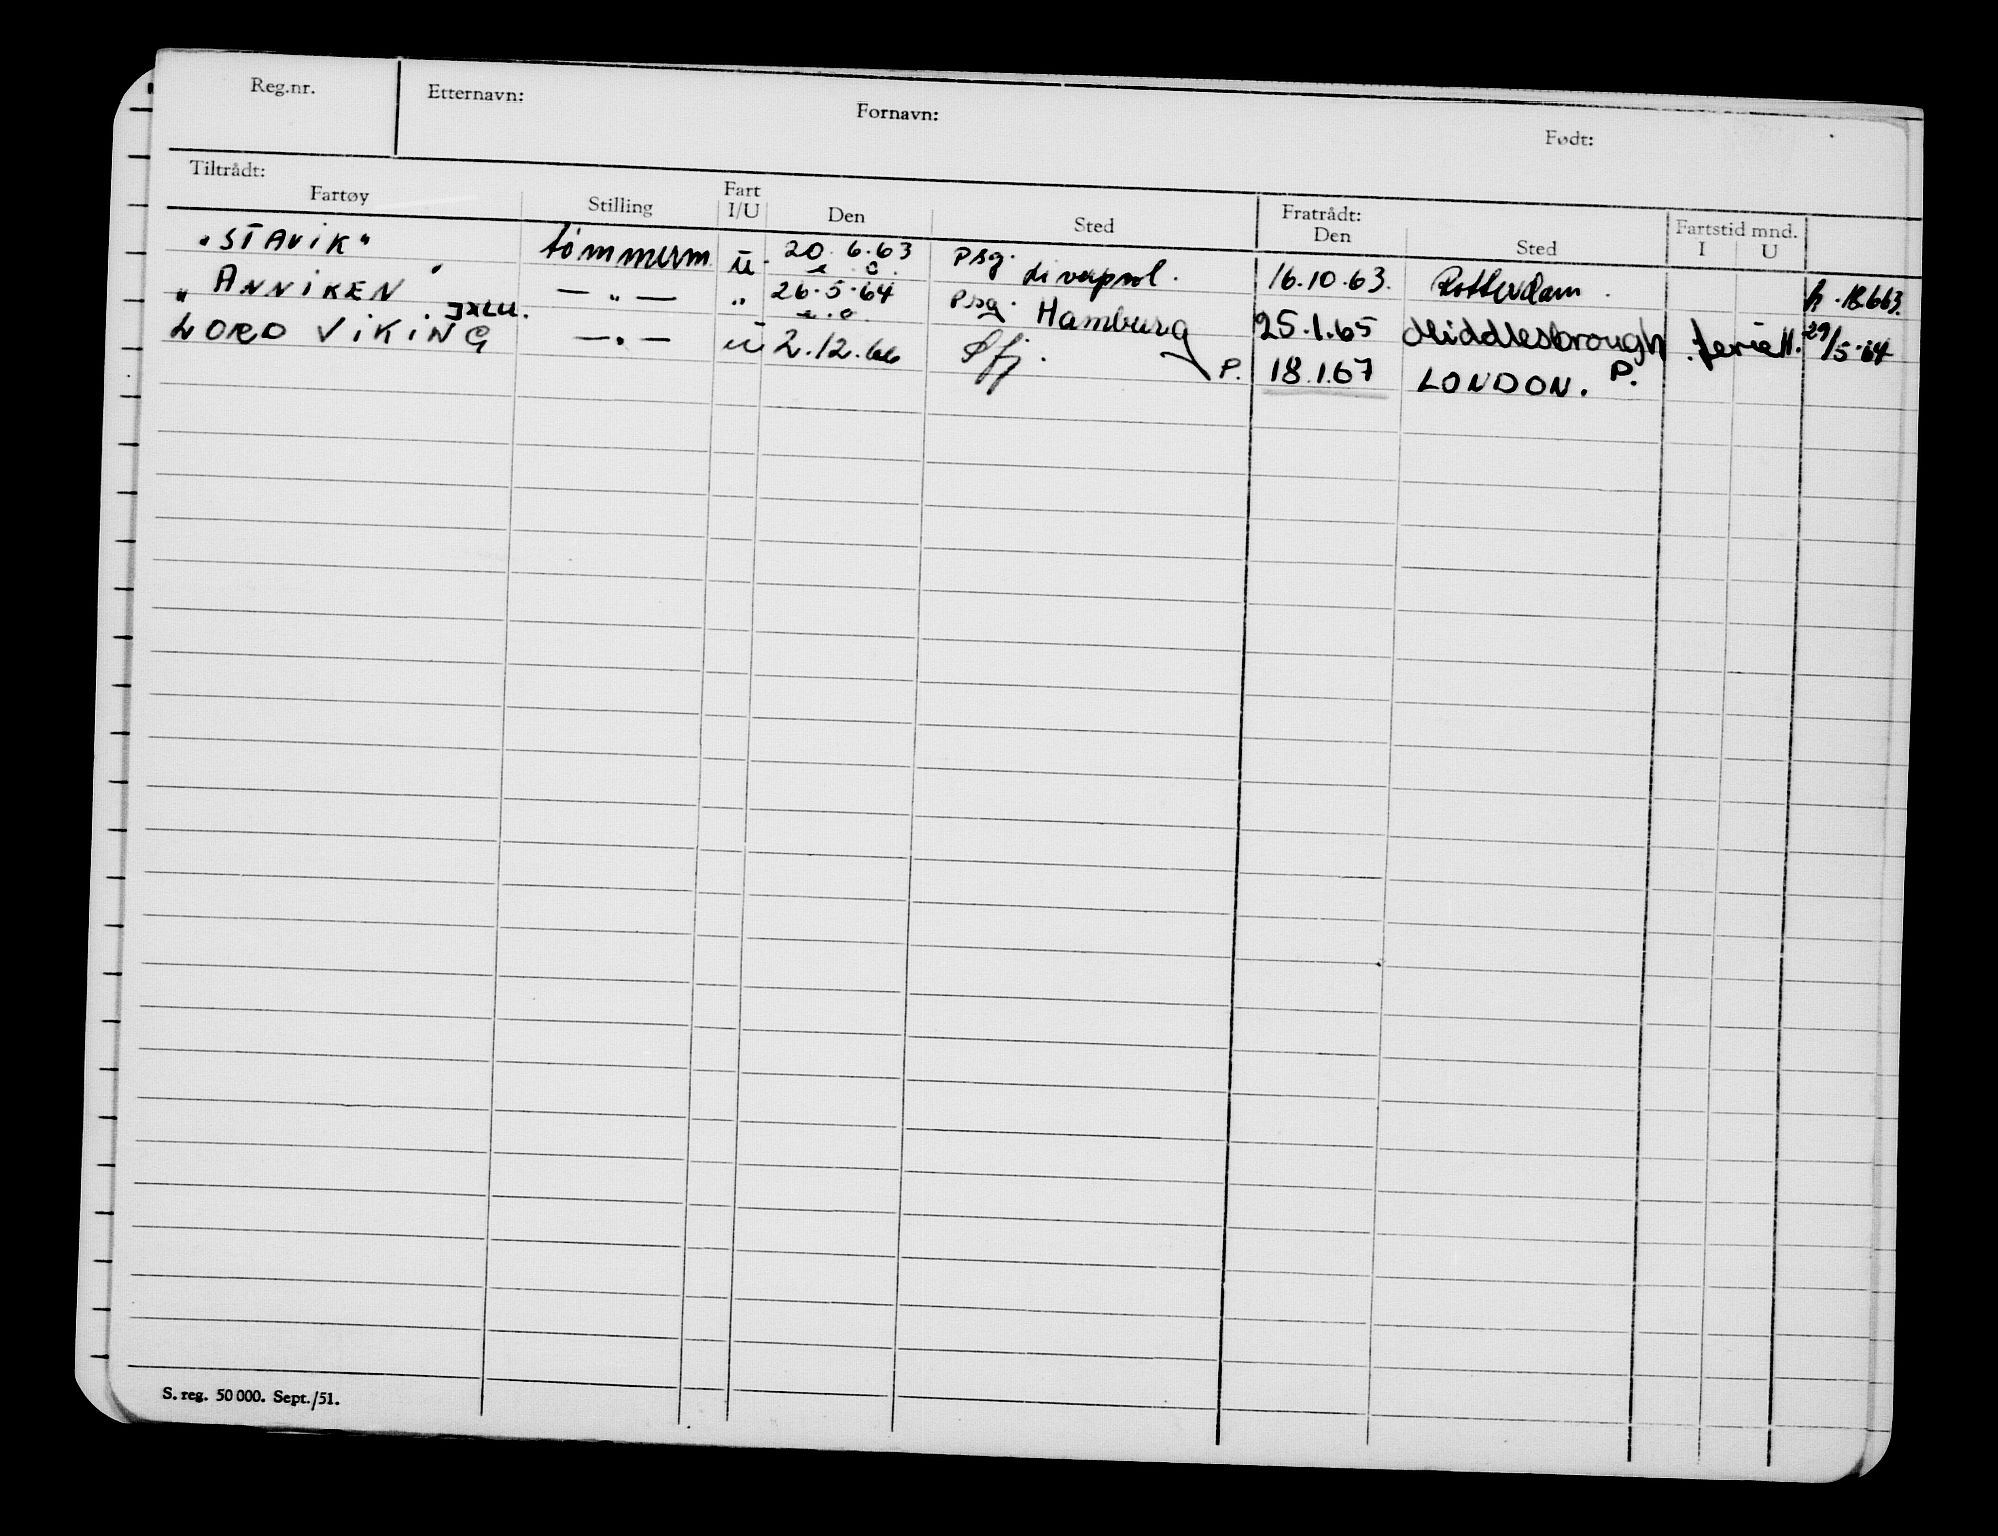 Reg.nr. Etternavn: Fornavn: Født:
Tiltrådt: Fratrådt:
Fartøy Stilling Fart I/U Den Sted Den Sted Fartstid mnd. I U
"STAVIK" tømmerm ü. 20.6.63 psg. Liverpool. 16.10.63. Rotterdam. 18.6.63.
"ANNIKEN" — „ — „ 26.5.64 psg. Hamburg 25.1.65 Middlesbrough ferie 29/5.64
LORD VIKING — „ — ü 2.12.66 P. 18.1.67 LONDON. P.
S. reg. 50 000. Sept./51.